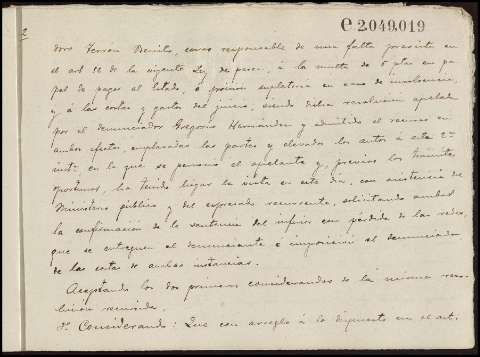 C 2.049.019
doro Ferrán Benito, como responsable de una falta prevista en
el art 52 de la vigente Ley de pesca, á la multa de 5 ptas en pa
pel de pagos al Estado, ó prision supletoria en caso de insolvencia,
y á las costas y gastos del juicio, siendo dicha resolucion apelada
por el denunciador Gregorio Hernández y admitido el recurso en
ambos efectos, emplazadas las partes y elevados los autos á esta 2ª
instª, en la que se personó el apelante y, previos los trámites
oportunos, ha tenido lugar la vista en este dia, con asistencia del
Ministerio público y del expresado recurrente, solicitando ambos
la confirmación de la sentencia del inferior con pérdida de las redes,
que se entreguen al denunciante é imposición al denunciado
de las costas de ambas instancias.
Aceptando los dos primeros considerandos de la misma reso-
lución recurrida.
3º Considerando: Que con arreglo á lo dispuesto en el art.